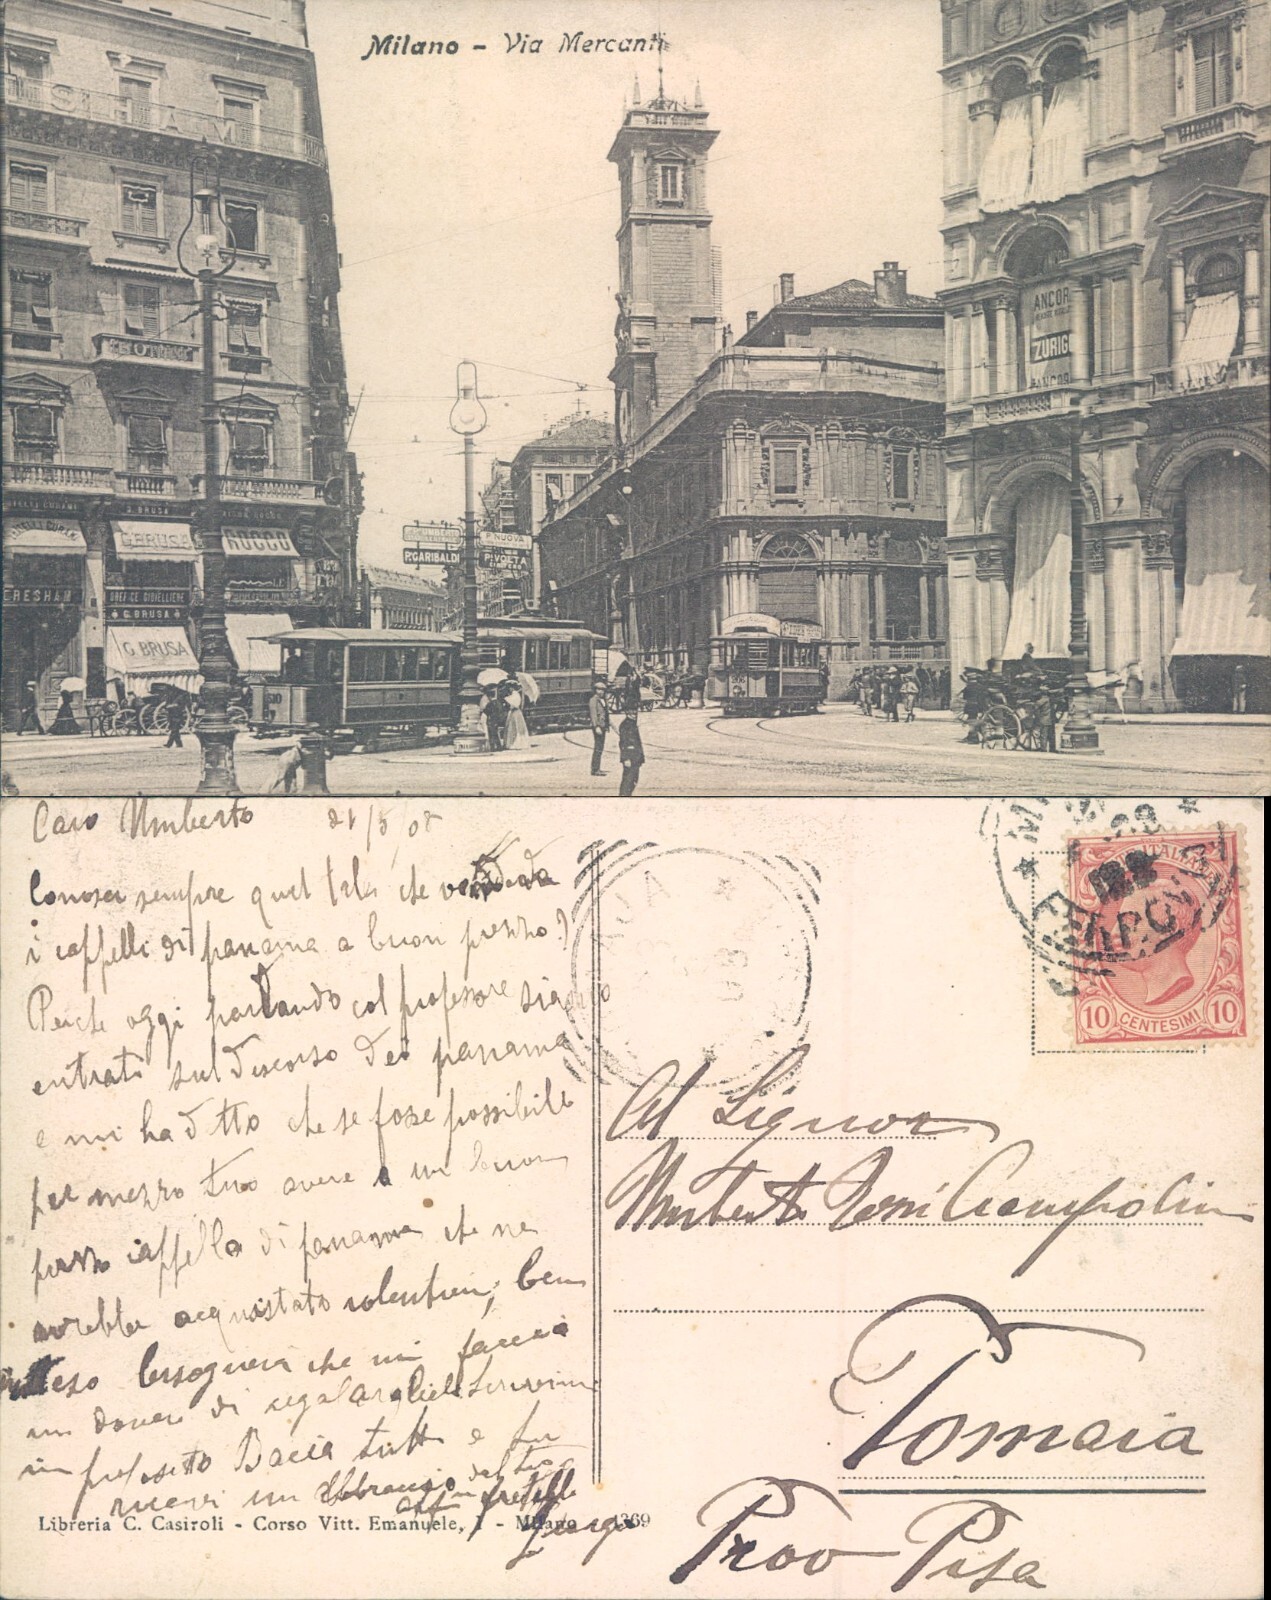 Milano - Via Mercanti
SHAM
ANCOR
ZURIG
ANCOR
G. BRUSA
G. BRUSA
ROCCO
P. NUOVA
P. GARIBALDI
P. VOLTA
ERESHAM
OREFICE GIOIELLIERE
G. BRUSA
G. BRUSA
Caro Umberto 21/5/08
Conosci sempre quel tale che vendeva
i cappelli di panama a buon prezzo?
Perché oggi parlando col professore siamo
entrati sul discorso dei panama
e mi ha detto che se fosse possibile
per mezzo tuo avere a un buon
prezzo cappello di panama che ne
avrebbe acquistato volentieri, ben
inteso bisognerà che mi faccia
un dovere di regalarglielo Scrivimi
in proposito Bacia tutti e tu
ricevi un abbraccio dal tuo
aff. fratello
Giorgio
Libreria C. Casiroli - Corso Vitt. Emanuele, 1 - Milano 1369
ITALIANE
10 CENTESIMI 10
Al Signor
Umberto Toni Ciampolini
Tomaia
Prov Pisa